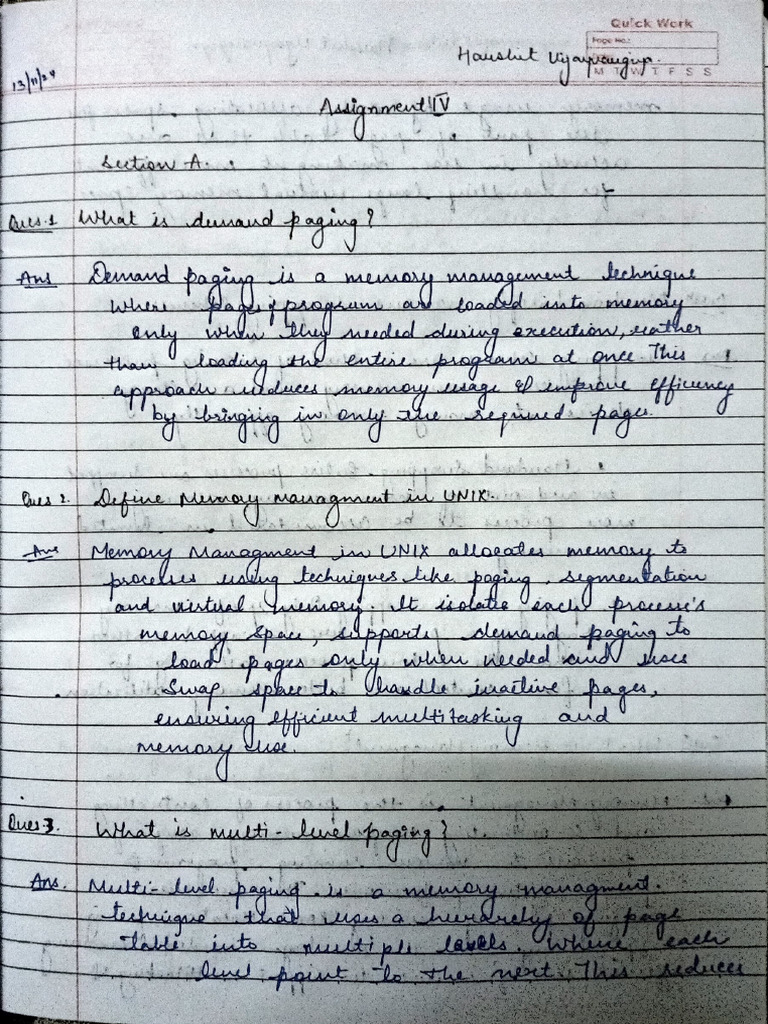 Quick Work
Page No.:
M T W T F S S
13/11/24
Assignment IV
Section A.
Ques.1 What is demand paging?
Ans Demand paging is a memory management technique
where pages of program are loaded into memory
only when they needed during execution, rather
than loading the entire program at once This
approach reduces memory usage & improve efficiency
by bringing in only the required pages.
Ques 2. Define Memory managment in UNIX.
Ans Memory Managment in UNIX allocates memory to
processes using techniques like paging, segmentation
and virtual memory. It isolate each process's
memory space, supports demand paging to
load pages only when needed and uses
Swap space to handle inactive pages,
ensuring efficient multitasking and
memory use.
Ques.3. What is multi-level paging?
Ans. Multi-level paging is a memory managment.
technique that uses a hierarchy of page
table into multiple levels. Where each
level point to the next This reduces